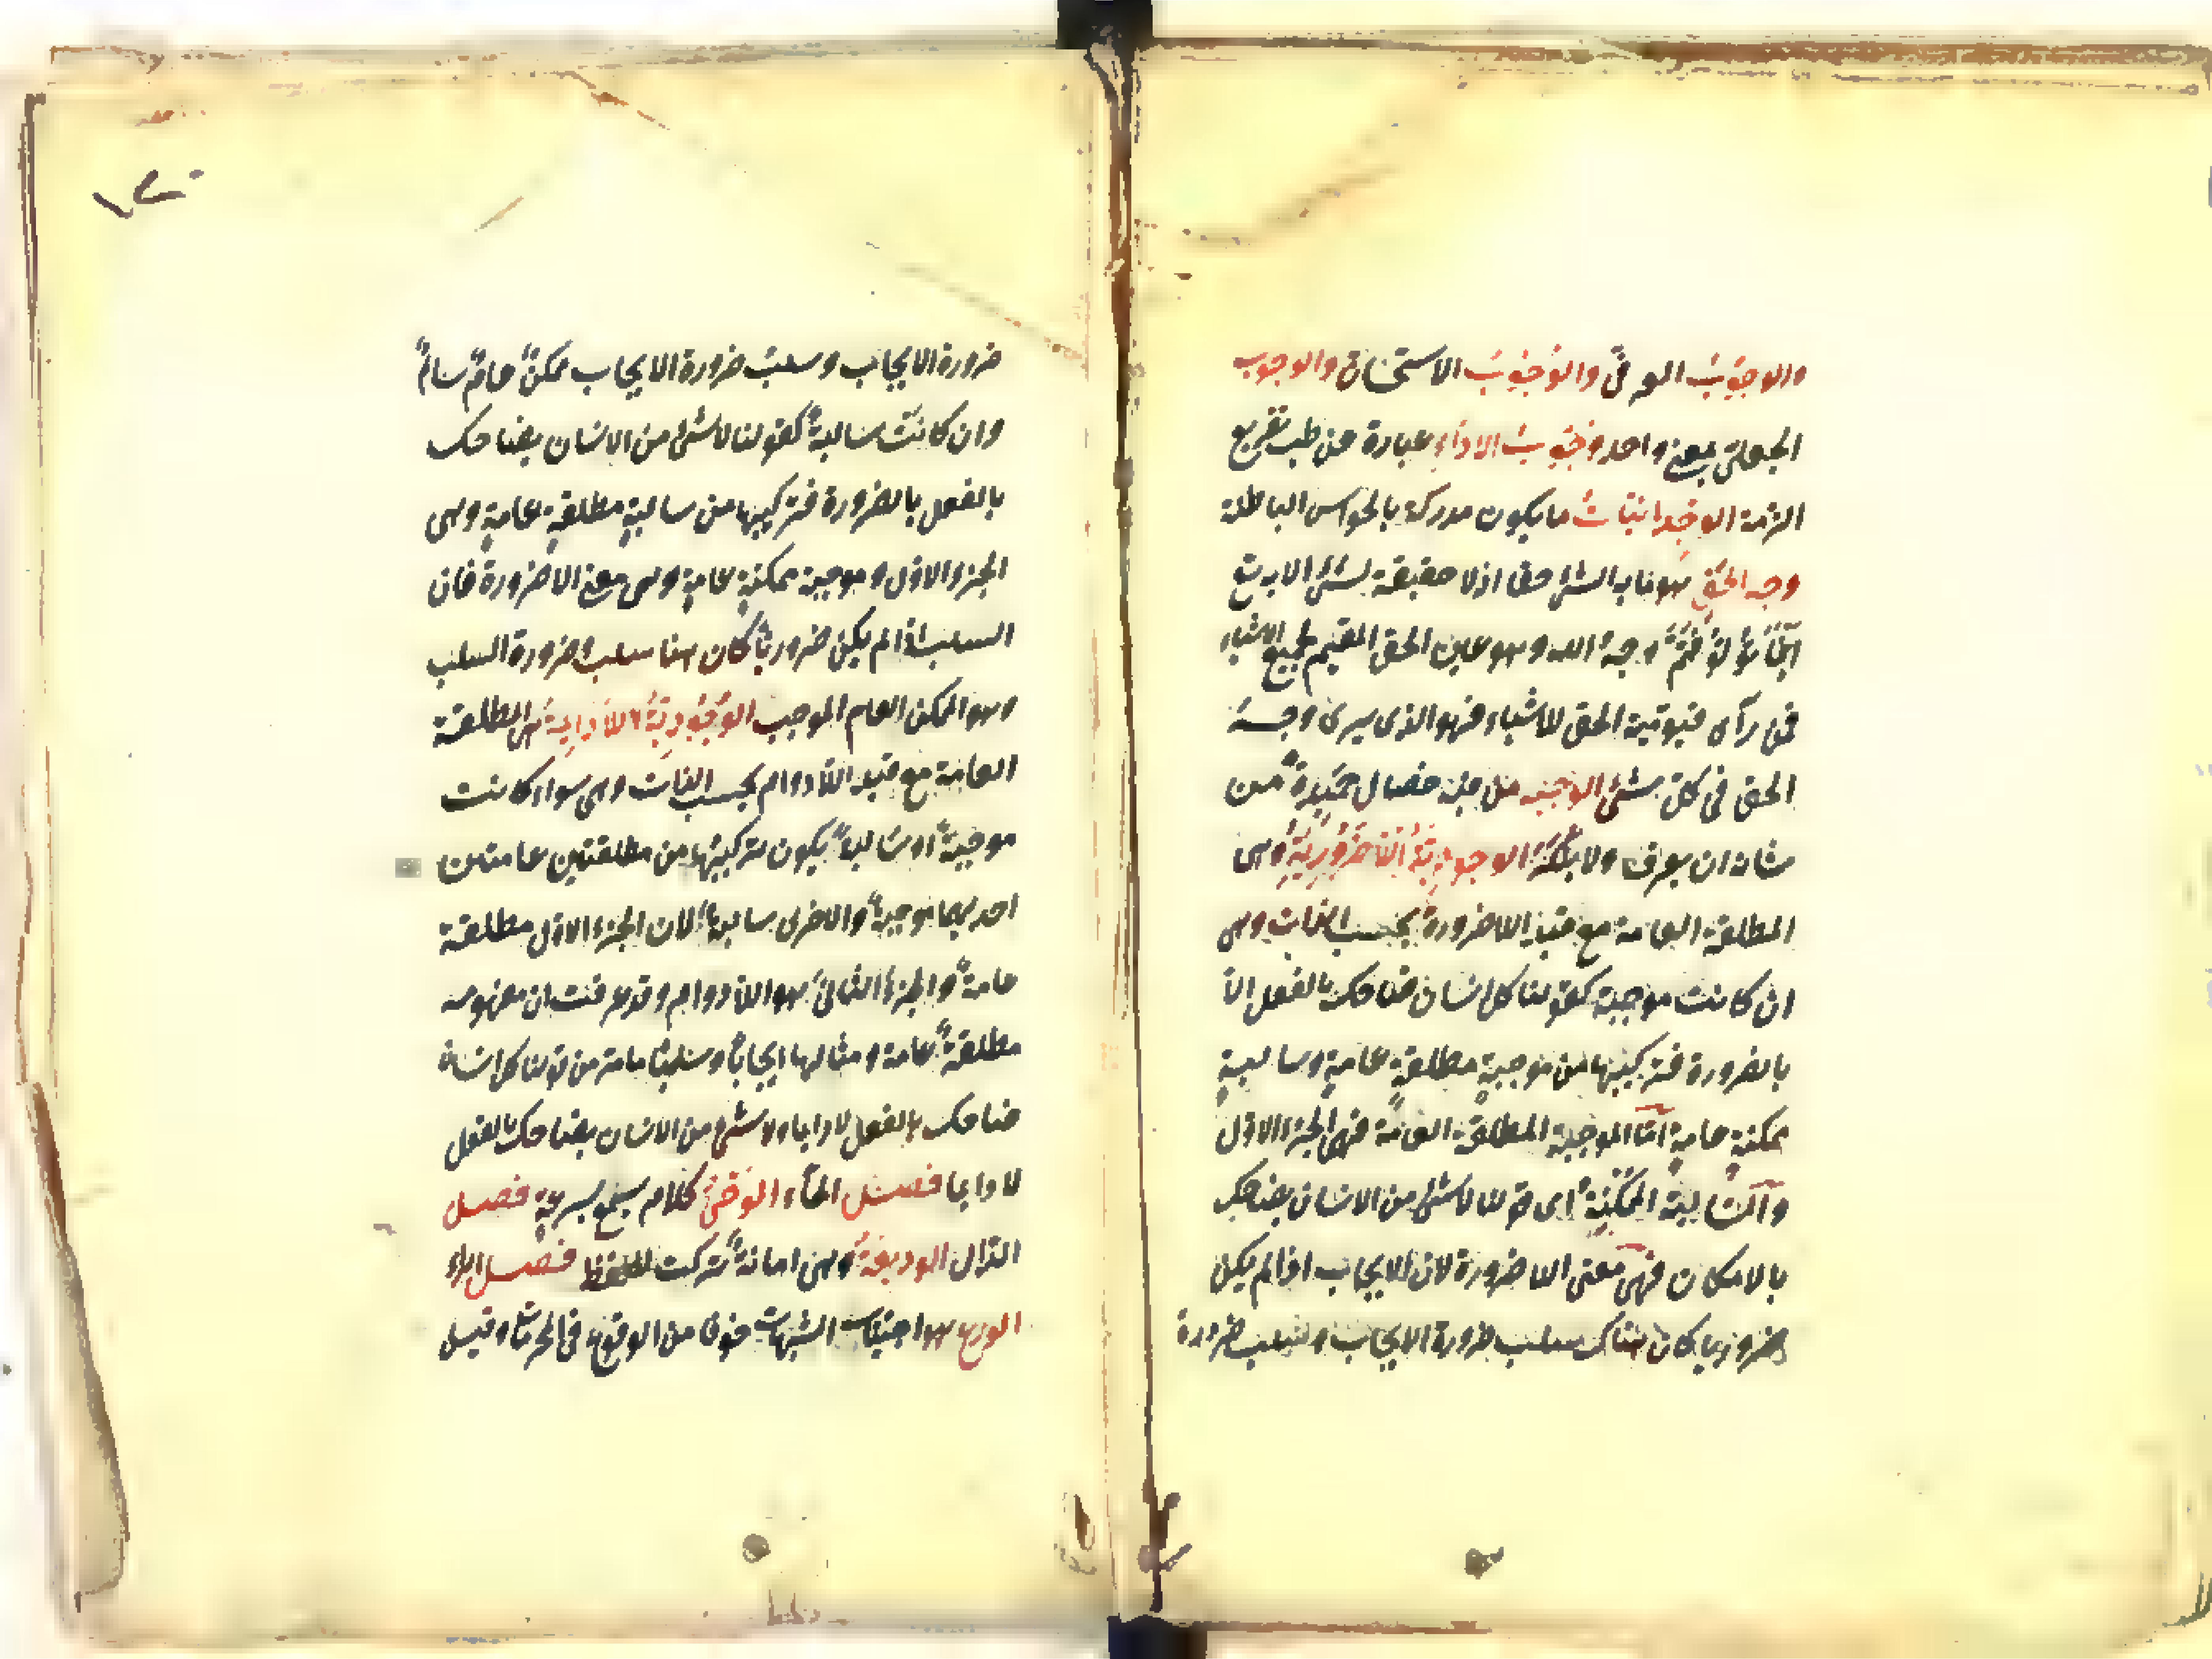 والوجوب العرفي والوجوب الاستحقاق والوجوب
العقلى بمعنى واحد وجوب الاداء عبارة عن طلب تفريغ
الذمة الوجدانيات ما يكون مدركة بالحواس الباطنة
وجه الحق هو ما به الشئ حقا اذ لا حقيقة لشئ الا به تع
اينما تولوا فثم وجه الله وهو عين الحق المقيم لجميع الاشياء
فمن رآى قيومية الحق للاشياء فهو الذى يرى وجه
الحق فى كل شئ الوجيه من فيه خصال حميدة من
شانه ان يعرف ولا ينكر الوجودية اللاضرورية وهى
المطلقة العامة مع قيد اللاضرورة بحسب الذات وهى
ان كانت موجبة كقولنا كل انسان ضاحك بالفعل لا
بالضرورة فتركيبها من موجبة مطلقة عامة وسالبة
ممكنة عامة اما الموجبة المطلقة العامة فهى الجزء الاول
واما السالبة الممكنة اى قولنا لا شئ من الانسان بضاحك
بالامكان فهى معنى اللاضرورة لان الايجاب اذا لم يكن
ضروريا كان هناك سلب ضرورة الايجاب وسلب ضرورة
ضرورة الايجاب وسلب ضرورة الايجاب ممكن عام سالم
وان كانت سالبة كقولنا لا شئ من الانسان بضاحك
بالفعل لا بالضرورة فتركيبها من سالبة مطلقة عامة وهى
الجزء الاول وموجبة ممكنة عامة وهى معنى اللاضرورة فان
السلب اذا لم يكن ضروريا كان هنا سلب ضرورة السلب
وهو الممكن العام الموجب الوجودية اللادائمة هى المطلقة
العامة مع قيد اللادوام بحسب الذات وهى سواء كانت
موجبة او سالبة يكون تركيبها من مطلقتين عامتين
احديهما موجبة والاخرى سالبة لان الجزء الاول مطلقة
عامة والجزء الثانى هو اللادوام وقد عرفت ان مفهومه
مطلقة عامة ومثالها ايجابا وسلبا ما مر من قولنا كل انسان
ضاحك بالفعل لا دايما ولا شئ من الانسان بضاحك بالفعل
لا دايما فصل الحاء الوحى كلام يسمع بسرعة فصل
الدال الوديعة وهى امانة تركت للحفظ فصل الراء
الورع هو اجتناب الشبهات خوفا من الوقوع فى المحرمات وقيل